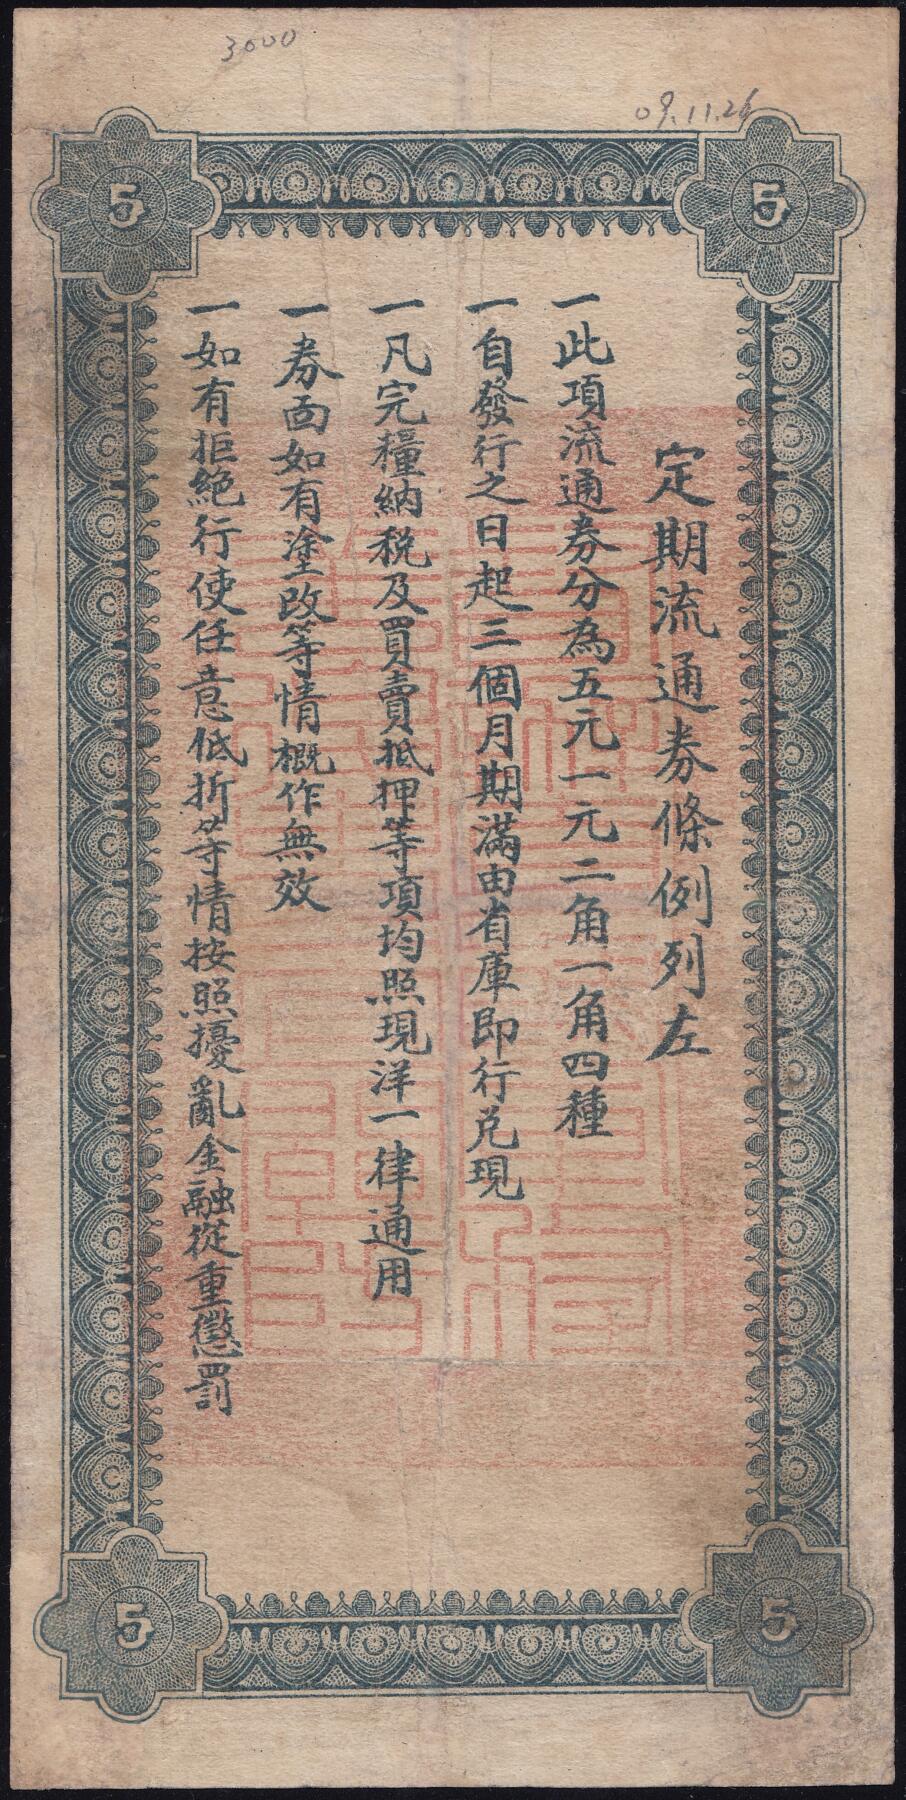 3000
09.11.26
5
5
定期流通券條例列左
一此項流通券分為五元一元二角一角四種
一自發行之日起三個月期滿由省庫即行兌現
一凡完糧納税及買賣抵押等項均照現洋一律通用
一券面如有塗改等情概作無效
一如有拒絶行使任意低折等情按照擾亂金融從重懲罰
5
5